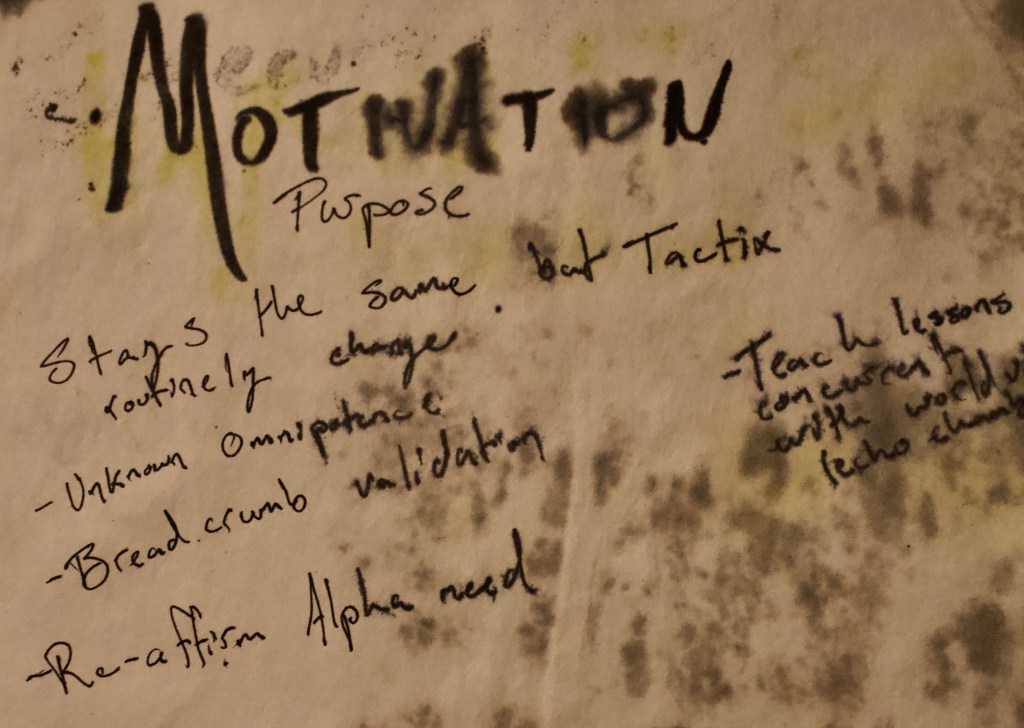 MOTIVATION
Purpose
Stays the same. but Tactix
routinely change
- Unknown Omnipotence
- Bread.crumb validation
- Re-affirm Alpha need
- Teach lessons
concurrent
with world
(echo